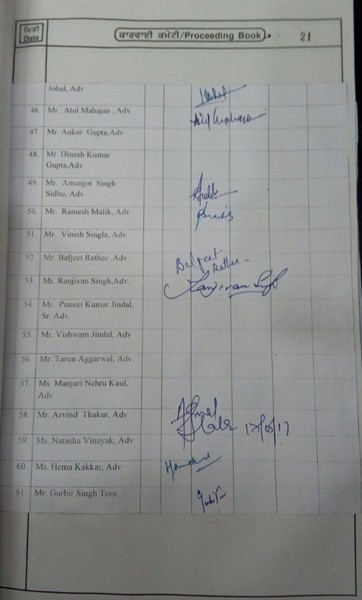 ਮਿਤੀ
Date
ਕਾਰਵਾਈ ਕਮੇਟੀ/Proceeding Book
21
Johal, Adv
46. Mr. Atul Mahajan, Adv
Atul Mahajan
47. Mr. Ankur Gupta,Adv
48. Mr. Dinesh Kumar
Gupta,Adv
49. Mr. Amanjot Singh
Sidhu, Adv
50. Mr. Ramesh Malik, Adv
51. Mr. Vinish Singla, Adv
52. Mr. Baljeet Rathee ,Adv
Baljeet
53. Mr. Ranjivan Singh,Adv.
Ranjivan Singh
54. Mr. Puneet Kumar Jindal,
Sr. Adv.
55. Mr. Vishwam Jindal, Adv
56. Mr. Tarun Aggarwal, Adv
57. Ms. Manjari Nehru Kaul,
Adv
58. Mr. Arvind Thakur, Adv
59. Ms. Natasha Vinayak, Adv
60. Ms. Hema Kakkar, Adv
61. Mr. Gurbir Singh Toor,